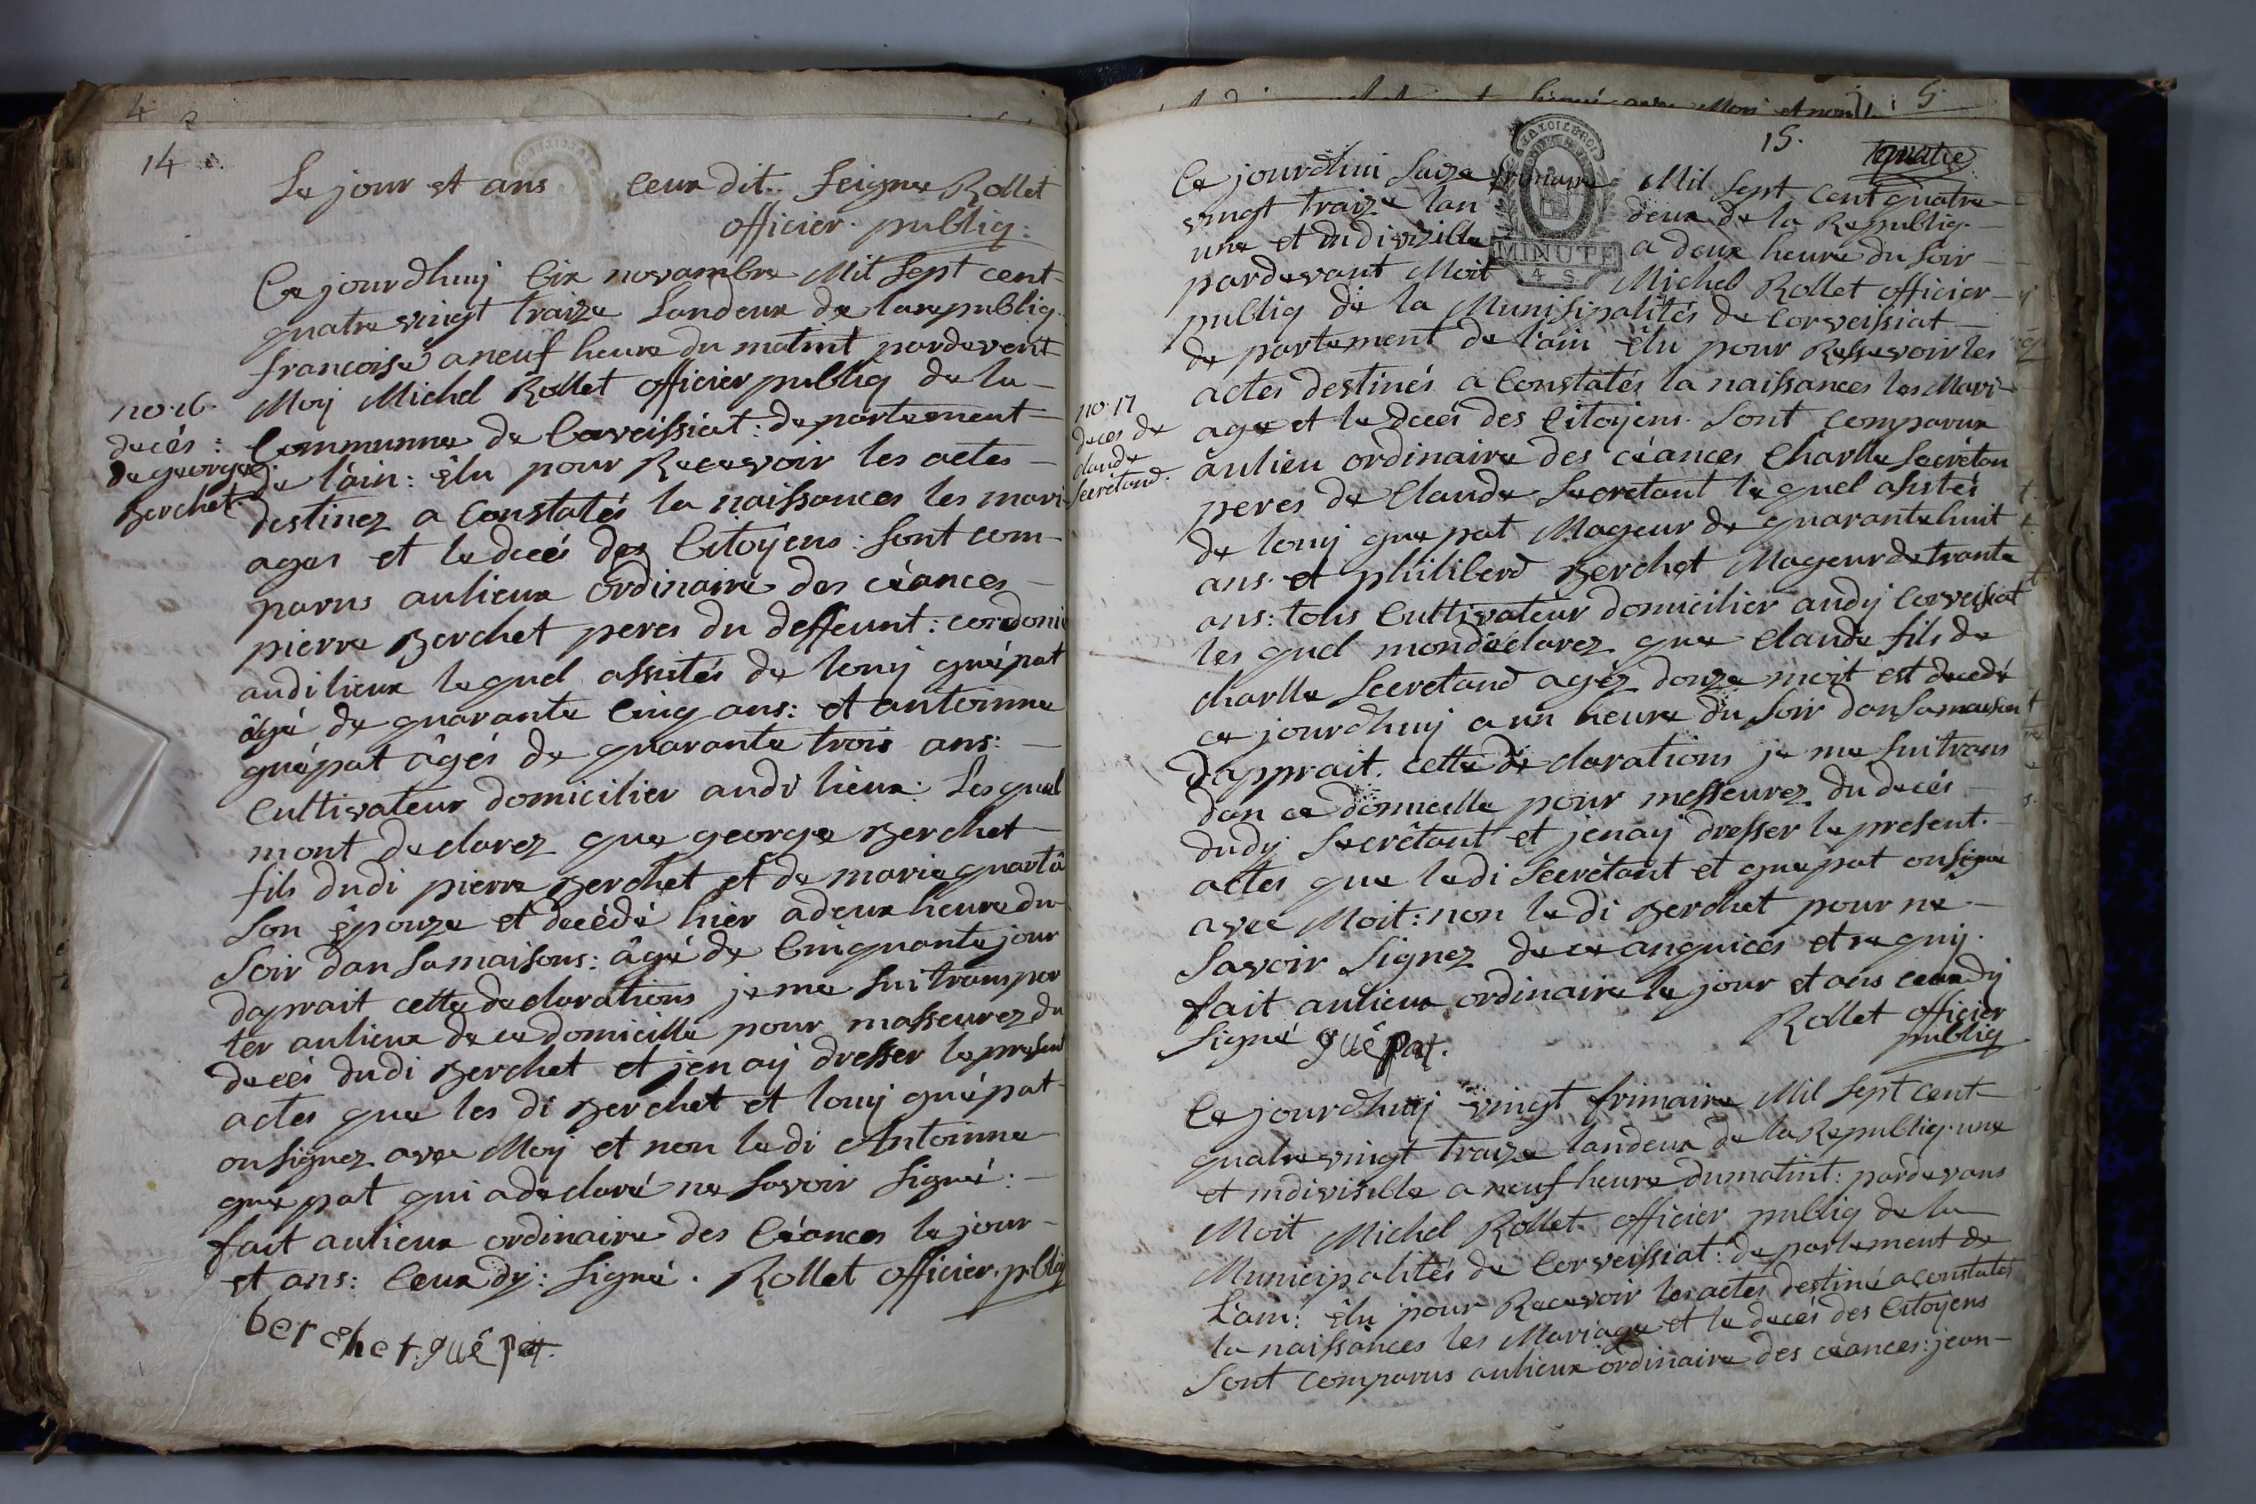 4
14
Le jour et ans ceux dit. Seigne Rollet
officier publiq:
Ce jourdhuij Cix novambre Mil Sept cent
quatre vingt traize Landeux de larepubliq.
francoise a neuf heure du matint pardevent
Moij Michel Rollet officier publiq de la
no. 16.
decés:
de george
Berchet.
Communne de Corveissiat: departement
de l'äin: êlu pour Recevoir les actes
destinez a Constatés la naissances les mari
ages et le decé des Citoÿens: Sont com-
parus aulieux ordinaire des céances
pierre Berchet peres du deffeunt: cordonie
audi lieux lequel assités de louij guépat
âgé de quarante Cinq ans: et antoinne
guépat âgés de quarante trois ans:
Cultivateur domicilier audi lieux: Lesquel
mont declarez que george Berchet
fils dudi pierre Berchet et de marie quartâ
Son êpouze et decédé hier a deux heure du
Soir dan Samaisons: âgé de Cinquante jour
daprait cette declarations je me Sui transpor
ter aulieux de ce domicille pour masseurez du
decés dudi Berchet et jen aij dresser le presend
actes que les di Berchet et louij guépat
on Signez avec Moij et non le di Antoinne
guepat qui a declaré ne Savoir Signé:
fait aulieux ordinaire des Céances le jour
et ans: Ceux dij: Signé. Rollet officier publiq
berchet. guêpat.
5
15.
quatre
Ce jourdhui Saize frimaire Mil Sept cent quatre
vingt traize lan deux de la Republiq.
une et indivizille a deux heure du Soir
pardevant Moit Michel Rollet officier
MINUTE
4 S
publiq de la Munisipalités de Corveissiat
departement de l'ain êlu pour Ressevoir les
actes destinés a Constatés la naissances les Mari
no. 17
deces de
claude
Secretand.
age et le decés des Citoÿens. Sont comparux
aulieu ordinaire des céances Charlle Secréton
peres de Claude Secretant lequel asistés
de louij guepat Mageur de quarantehuit
ans. et philiberd Berchet Mageur de trante
ans: tous Cultivateur domicilier audij Corveissiat
les quel mondéclarez que Claude fils de
charlle Secretand agéz douze moit est decedé
ce jourdhuij a un heure du Soir dan Samaison
dapprait. cette declarations je me Sui trans
dan ce domicille pour messeurez du decés
dudij Secrêtant et jenaij dresser le present.
actes que ledi Secrétant et guepat on Signé
avec Moit: non le di Berchet pour ne
Savoir Signez de ce anquices et requij.
fait aulieux ordinaire le jour et ans ceux dij
Signé guêpat. Rollet officier
publiq
Ce jourdhuij vingt frimaire Mil Sept cent
quatre vingt traize landeux de la Republiq. une
et indivisille a neuf heure dumatint: pardevans
Moit Michel Rollet officier publiq de la
Municipalités de Corveissiat: departement de
Lain: êlu pour Recevoir les actes destiné a constatés
la naissances les Mariage et le decés des Citoÿens
Sont comparus aulieux ordinaire des céances: jean